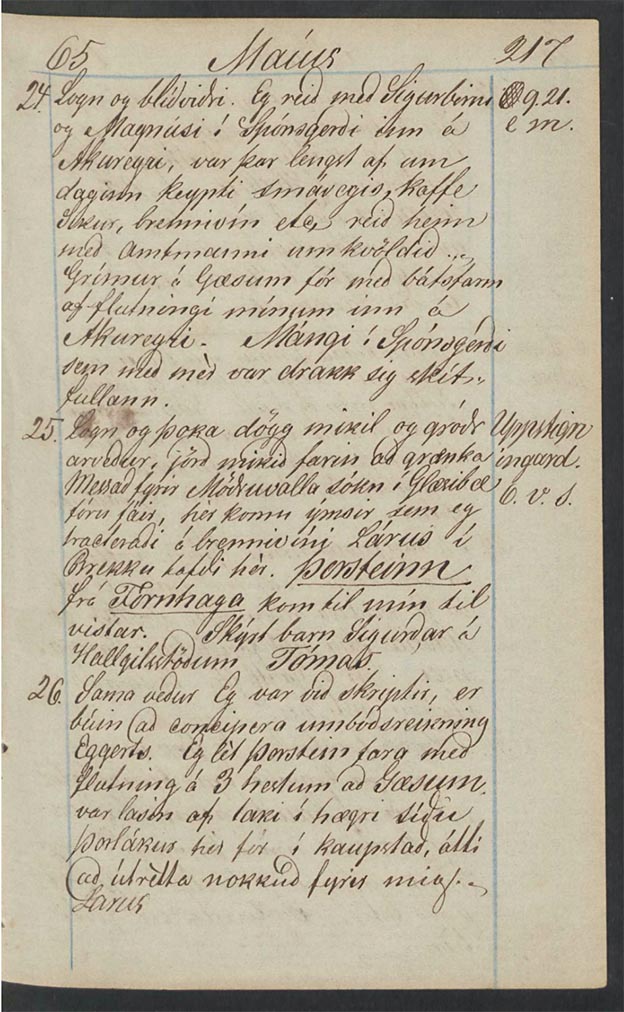 65 Maíus 217
24. Logn og blíðviðri. Eg reið með Sigurbirni 9.21.
og Magnúsi í Spónsgerði inn á e m.
Akureyri, var þar lengst af um
daginn keypti smávegis, kaffe
Sikur, brennivín etc, reið heim
með Amtmanni um kvöldið ..,
Grímur á Gæsum fór með bátsfarm
af flutningi mínum inn á
Akureyri. Mángi í Spónsgérði
sem með mér var drakk sig skít-
fullann.
25. Logn og þoka dögg mikil og gróðr Uppstign
arveður, jörð mikið farin að grænka íngard.
Messað fyrir Möðruvalla sókn í Glæsibæ 6. v. s.
fóru fáir, hér komu ymsir sem eg
tracteraði á brennivíni Lárus í
Brekku tafði hér. Þorsteinn
frá Fornhaga kom til mín til
vistar. Skýrt barn Sigurðar á
Hallgilsstöðum Tómas.
26. Sama veður Eg var við skriptir, er
búin að concipera umboðsreikning
Eggerts. Eg lét Þorstein fara með
flutning á 3 hestum að Gæsum.
var lasin af taki í hægri síðu
Þorlákur hér fór í kaupstað, átti
að útrétta nokkuð fyrir mig.
Larus